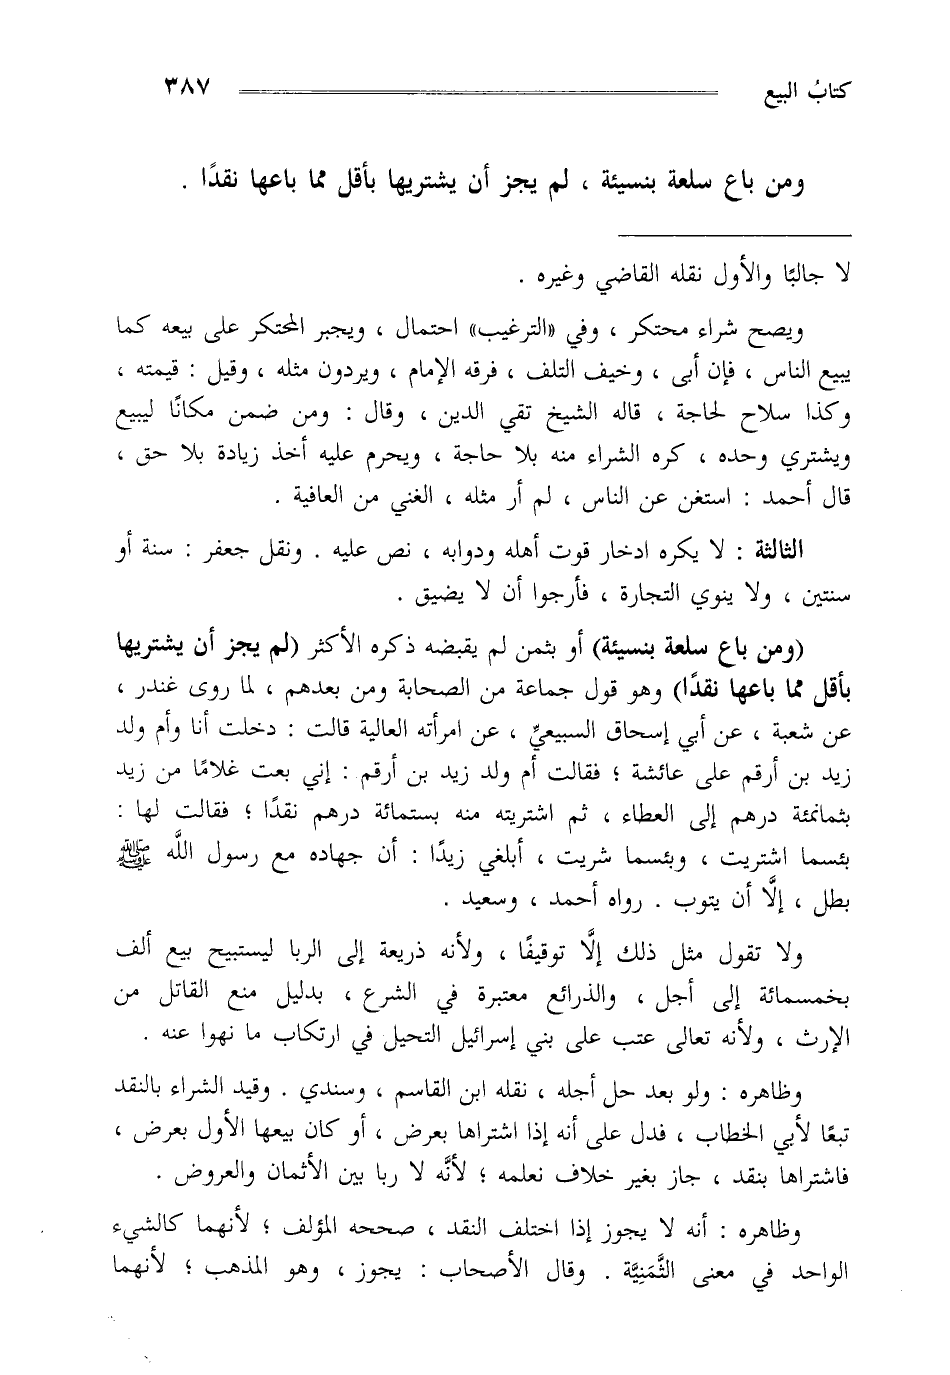 كتابُ البيع ٣٨٧
ومن باع سلعة بنسيئة ، لم يجز أن يشتريها بأقل مما باعها نقدًا .
لا جالبًا والأول نقله القاضي وغيره .
ويصح شراء محتكر ، وفي «الترغيب» احتمال ، ويجبر المحتكر على بيعه كما
يبيع الناس ، فإن أبى ، وخيف التلف ، فرقه الإمام ، ويردون مثله ، وقيل : قيمته ،
وكذا سلاح لحاجة ، قاله الشيخ تقي الدين ، وقال : ومن ضمن مكانًا ليبيع
ويشتري وحده ، كره الشراء منه بلا حاجة ، ويحرم عليه أخذ زيادة بلا حق ،
قال أحمد : استغن عن الناس ، لم أر مثله ، الغني من العافية .
الثالثة : لا يكره ادخار قوت أهله ودوابه ، نص عليه . ونقل جعفر : سنة أو
سنتين ، ولا ينوي التجارة ، فأرجوا أن لا يضيق .
(ومن باع سلعة بنسيئة) أو بثمن لم يقبضه ذكره الأكثر (لم يجز أن يشتريها
بأقل مما باعها نقدًا) وهو قول جماعة من الصحابة ومن بعدهم ، لما روى غندر ،
عن شعبة ، عن أبي إسحاق السبيعيِّ ، عن امرأته العالية قالت : دخلت أنا وأم ولد
زيد بن أرقم على عائشة ؛ فقالت أم ولد زيد بن أرقم : إني بعت غلامًا من زيد
بثمانمئة درهم إلى العطاء ، ثم اشتريته منه بستمائة درهم نقدًا ؛ فقالت لها :
بئسما اشتريت ، وبئسما شريت ، أبلغي زيدًا : أن جهاده مع رسول اللَّه ﷺ
بطل ، إلَّا أن يتوب . رواه أحمد ، وسعيد .
ولا تقول مثل ذلك إلَّا توقيفًا ، ولأنه ذريعة إلى الربا ليستبيح بيع ألف
بخمسمائة إلى أجل ، والذرائع معتبرة في الشرع ، بدليل منع القاتل من
الإرث ، ولأنه تعالى عتب على بني إسرائيل التحيل في ارتكاب ما نهوا عنه .
وظاهره : ولو بعد حل أجله ، نقله ابن القاسم ، وسندي . وقيد الشراء بالنقد
تبعًا لأبي الخطاب ، فدل على أنه إذا اشتراها بعرض ، أو كان بيعها الأول بعرض ،
فاشتراها بنقد ، جاز بغير خلاف نعلمه ؛ لأنَّه لا ربا بين الأثمان والعروض .
وظاهره : أنه لا يجوز إذا اختلف النقد ، صححه المؤلف ؛ لأنهما كالشيء
الواحد في معنى الثَّمَنِيَّة . وقال الأصحاب : يجوز ، وهو المذهب ؛ لأنهما